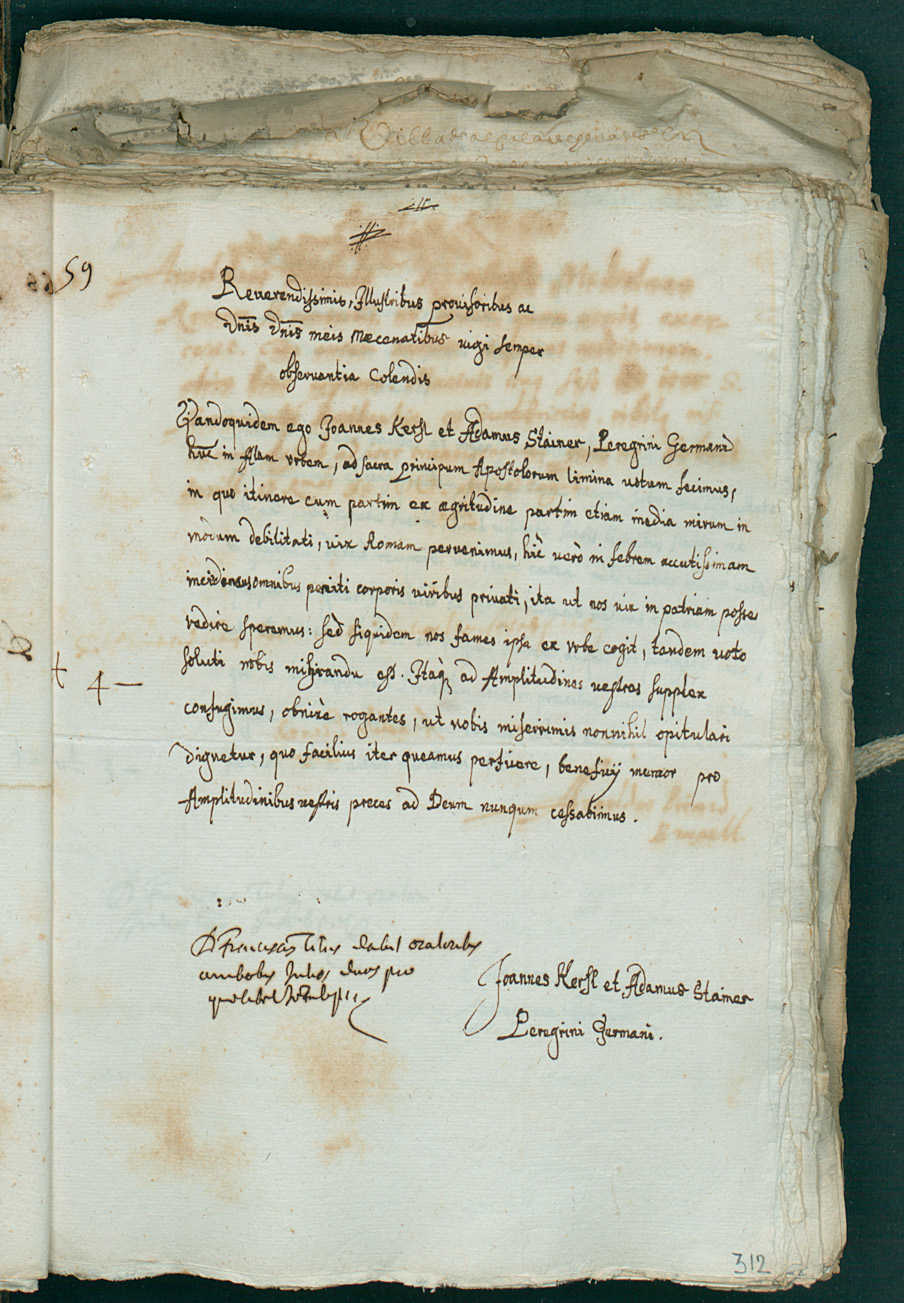 59
Reuerendissimis, Illustribus prouisoribus ac
Dnis Dnis meis Mæcenatibus uigi semper
obseruantia Colendis
Quandoquidem ego Joannes Kerßl et Adamus Stainer, Peregrini Germani
huc in Almam vrbem, ad sacra principum Apostolorum limina uotum fecimus,
in quo itinere cum partim ex ægritudine partim etiam inedia mirum in
modum debilitati, uix Romam peruenimus, hic uerò in febrem accutissimam
omnibus peniti corporis uiribus priuati, ita ut nos uix in patriam posse
redire speremus: sed siquidem nos fames ipsa ex vrbe cogit, tandem uoto
soluti nobis est. Itaq ad Amplitudines uestras supplex
confugimus, obnixè rogantes, ut nobis miserrimis nonnihil opitulari
dignetur, quo facilius iter queamus perficere, beneficij memor pro
Amplitudinibus uestris preces ad Deum nunqum cessabimus.
D Franciscus dabit oratoribs
ambobs Julios duos pro
quolibet
Joannes Kerßl et Adamus Stainer
Peregrini Germani.
4 —
312